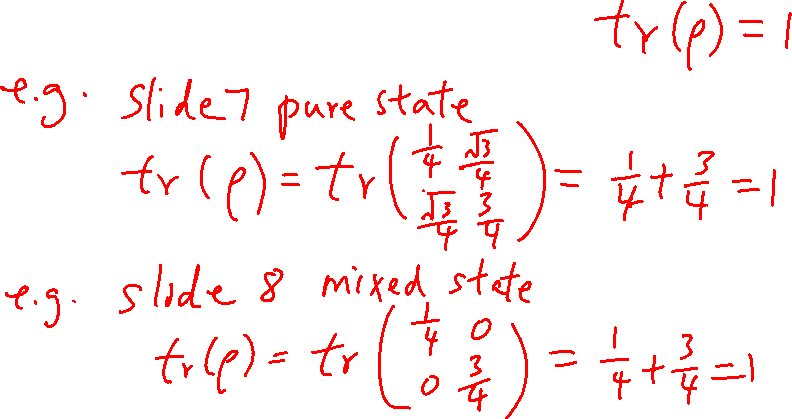 tr(ρ) = 1
e.g. slide 7 pure state
tr(ρ) = tr(1/4 √3/4 √3/4 3/4) = 1/4 + 3/4 = 1
e.g. slide 8 mixed state
tr(ρ) = tr(1/4 0 0 3/4) = 1/4 + 3/4 = 1